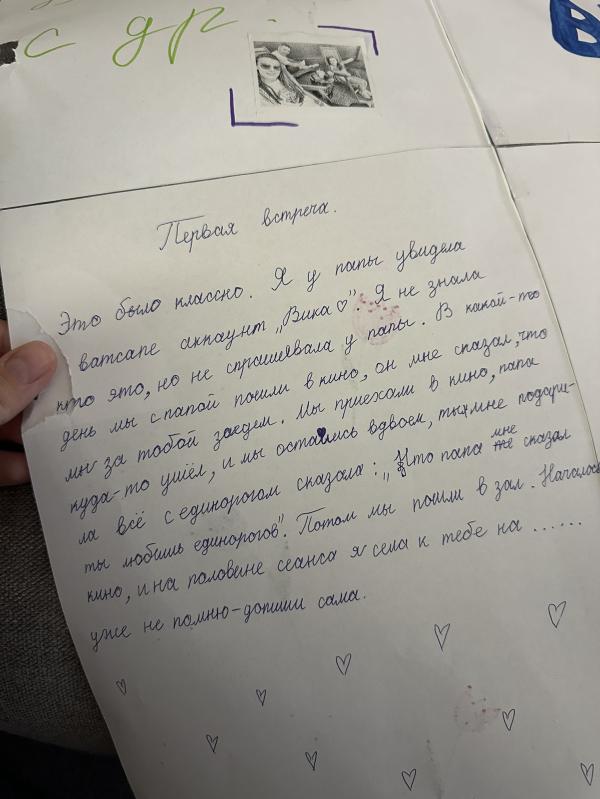 с др.
В
Первая встреча.
Это было классно. Я у папы увидела
ватсапе аккаунт „Вика♡". Я не знала
кто это, но не спрашивала у папы. В какой-то
день мы с папой пошли в кино, он мне сказал, что
мы за тобой заедем. Мы приехали в кино, папа
куда-то ушёл, и мы остались вдвоем, ты мне подари-
ла всё с единорогом сказала: „Что папа мне сказал
ты любишь единорогов". Потом мы пошли в зал. Началось
кино, и на половине сеанса я села к тебе на ......
уже не помню-допиши сама.